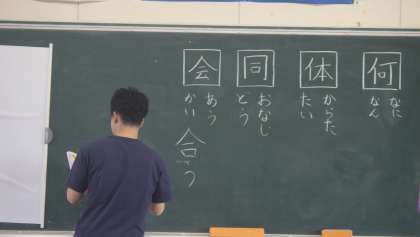 何
なに
なん
体
からた
たい
同
おなじ
どう
会
あう
かい
合う